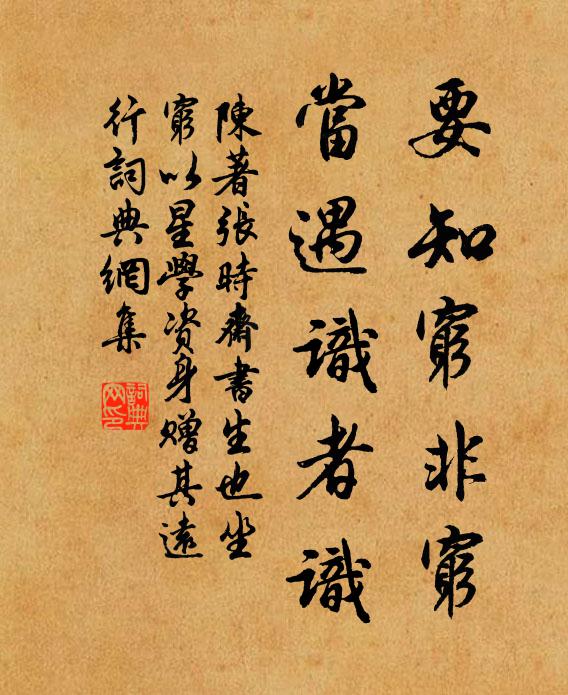 要知窮非窮
當遇識者識
陳著張時齋書生也坐
窮以星學資身贈其遠
行詞典網集
詞典網印